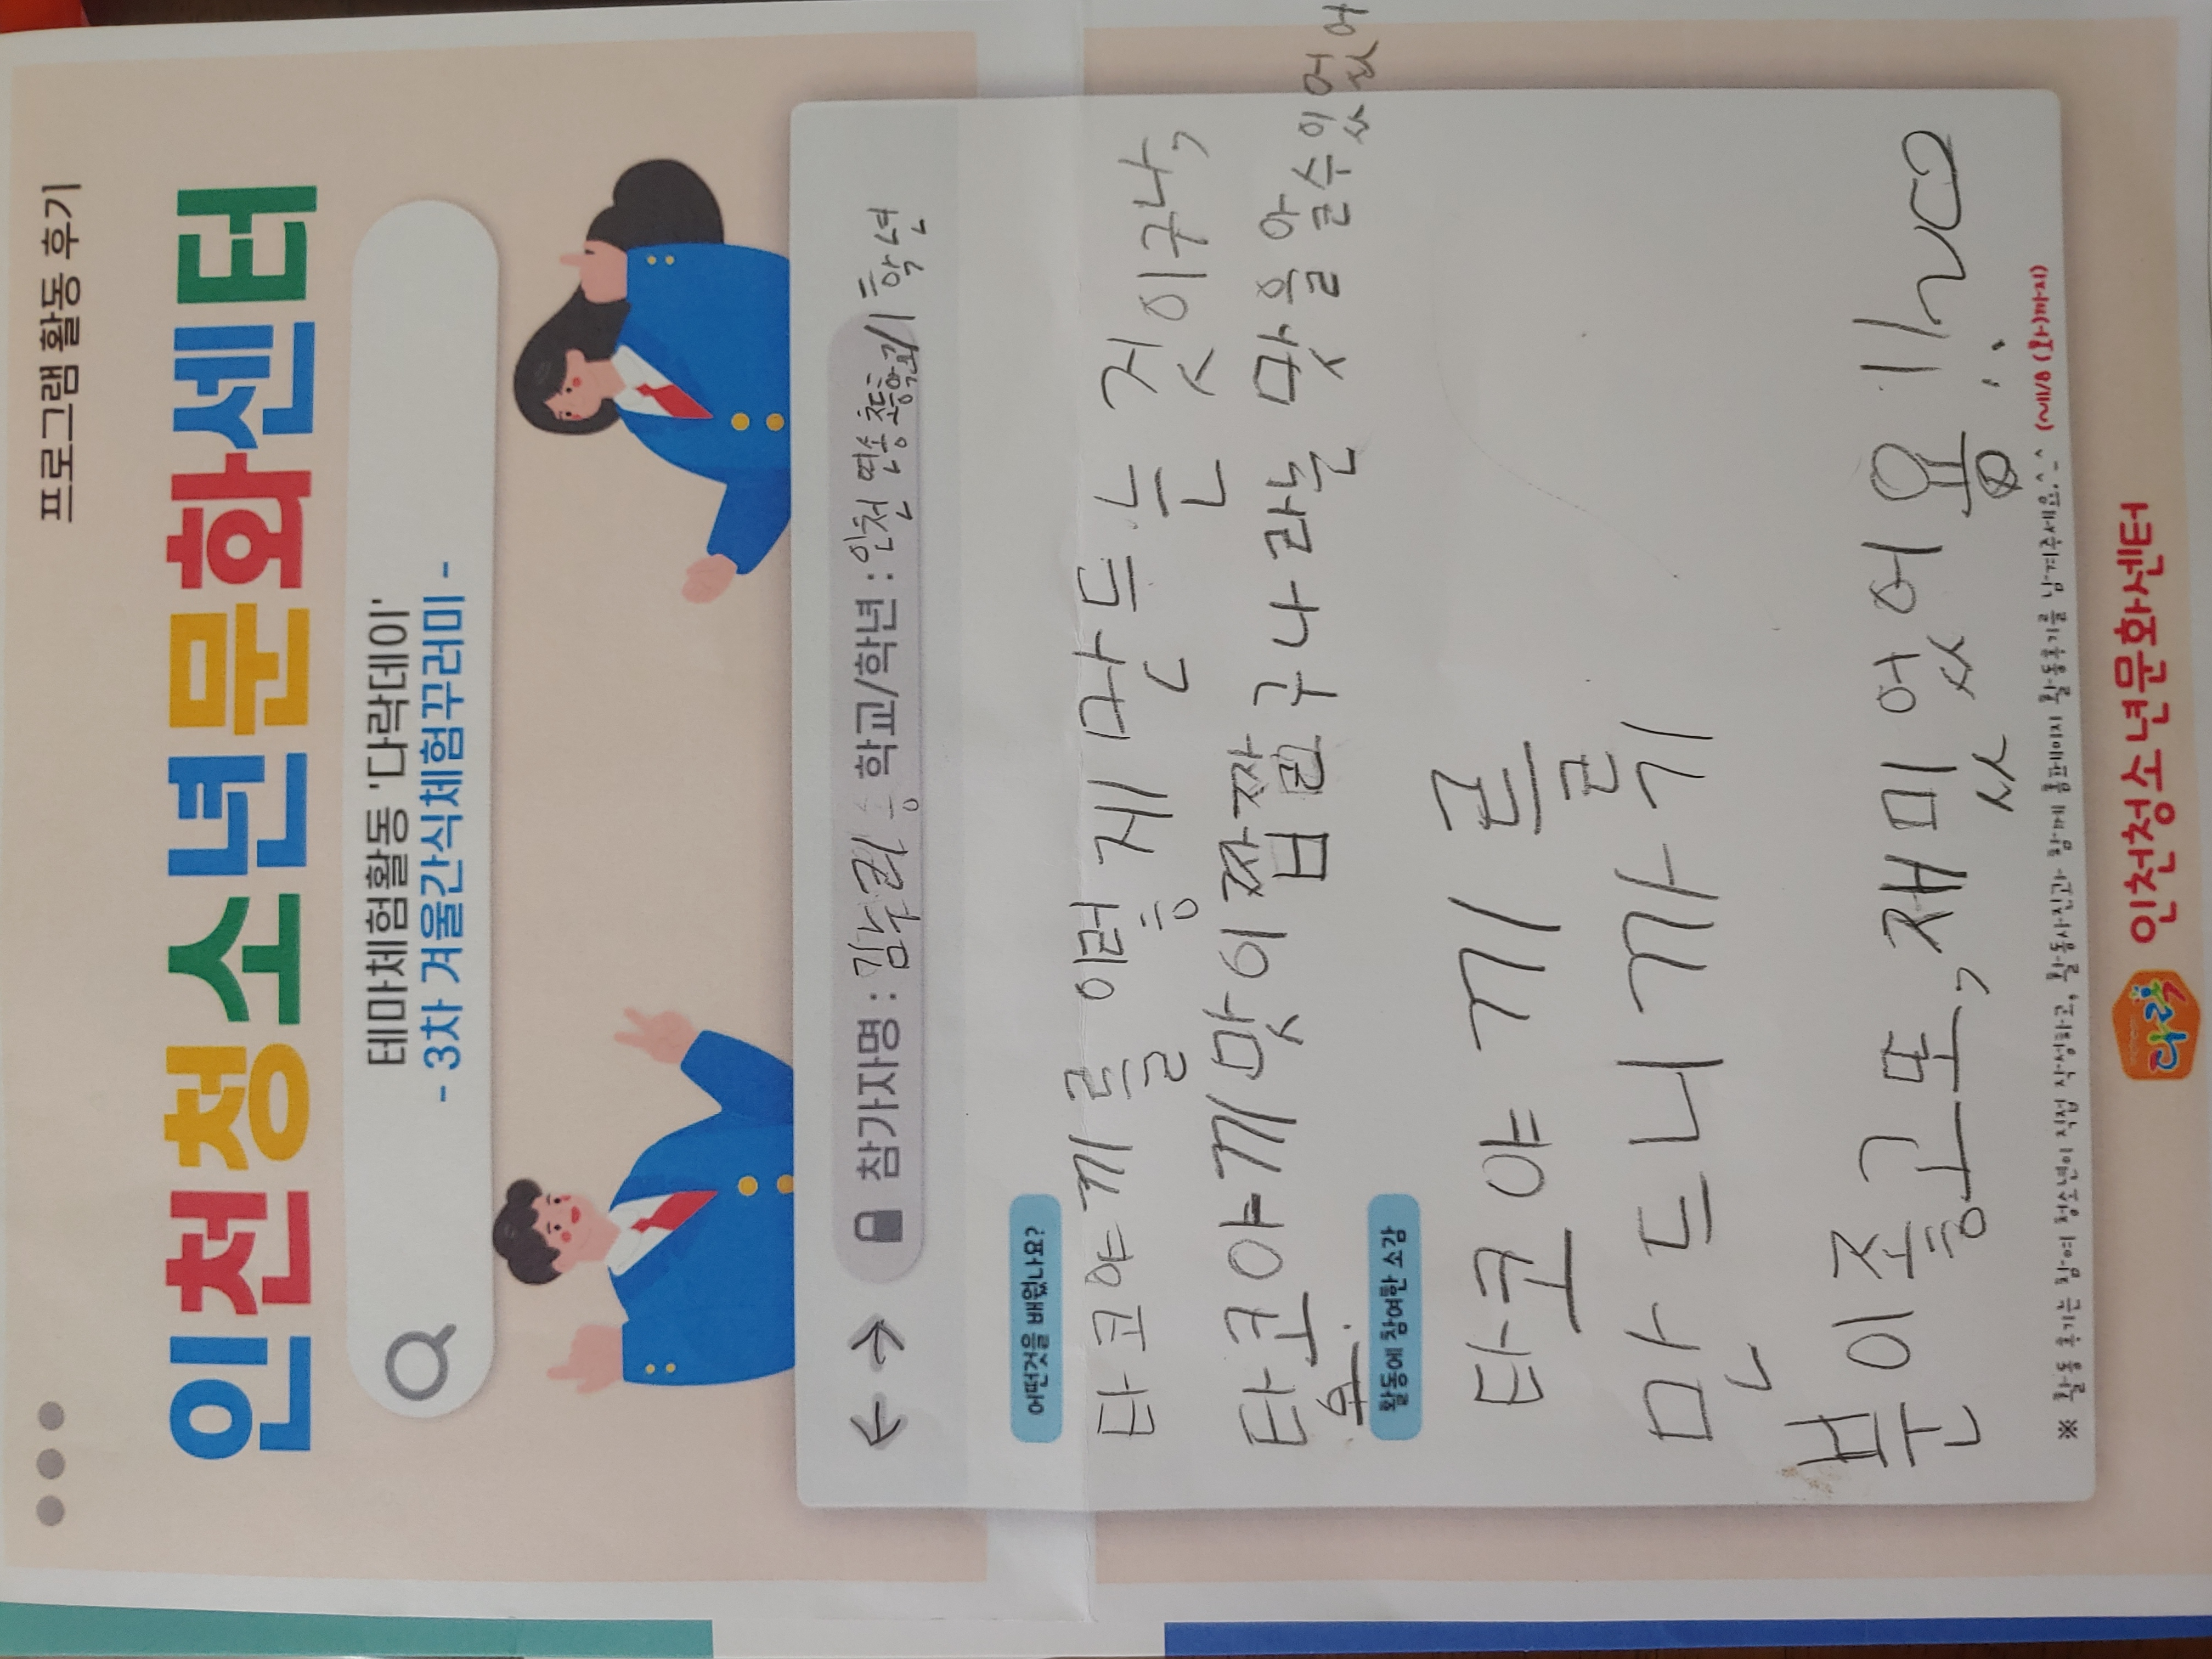 프로그램 활동 후기
인천청소년문화센터
테마체험활동 '다락데이'
- 3차 겨울간식체험꾸러미 -
참가자명 : 학교/학년 : 인천 연송초등학교/1학년
어떤것을 배웠나요?
타코야끼를 이렇제 만드는 것이구나,
타코야끼맛이 짭짤구나라는 맛을 알수있었어
요.
활동에 참여한 소감
타코야끼를
만드니까 기
분이좋고또, 재미있어욤!
※ 활동 후기는 참여 청소년이 직접 작성하고, 활동사진과 함께 홈페이지 활동후기를 남겨주세요.^^ (~1/8(화)까지)
다락 인천청소년문화센터